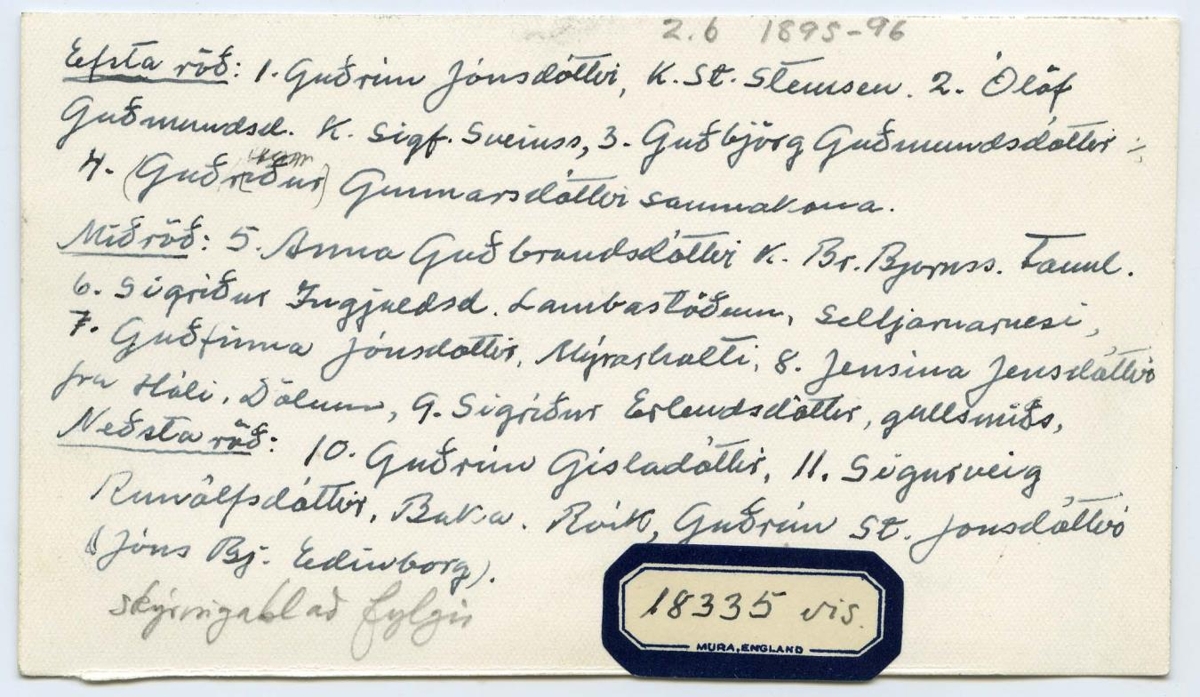 2.6 1895-96
Efsta röð: 1. Guðrún Jónsdóttir, K. St. Stemsen. 2. Ólöf
Guðmundsd. K. Sigf. Sveinss, 3. Guðbjörg Guðmundsdóttir
4. (Guðríður) Gunnarsdóttir saumakona.
Miðröð: 5. Anna Guðbrandsdóttir K. Br. Bjornss. Tannl.
6. Sigríður Ingjaldsd. Lambastöðum, Seltjarnarnesi,
7. Guðfinna Jónsdóttir, Mýrarholti, 8. Jensína Jensdóttir
frá Hóli, Dölum, 9. Sigríður Erlendsdóttir, gullsmiðs,
Neðsta röð: 10. Guðrún Gísladóttir, 11. Sigurveig
Runólfsdóttir, Baka. Rvik, Guðrún St. Jónsdóttir
(Jóns Bj. Edinborg).
skýringablað fylgir
18335 vis.
MURA, ENGLAND